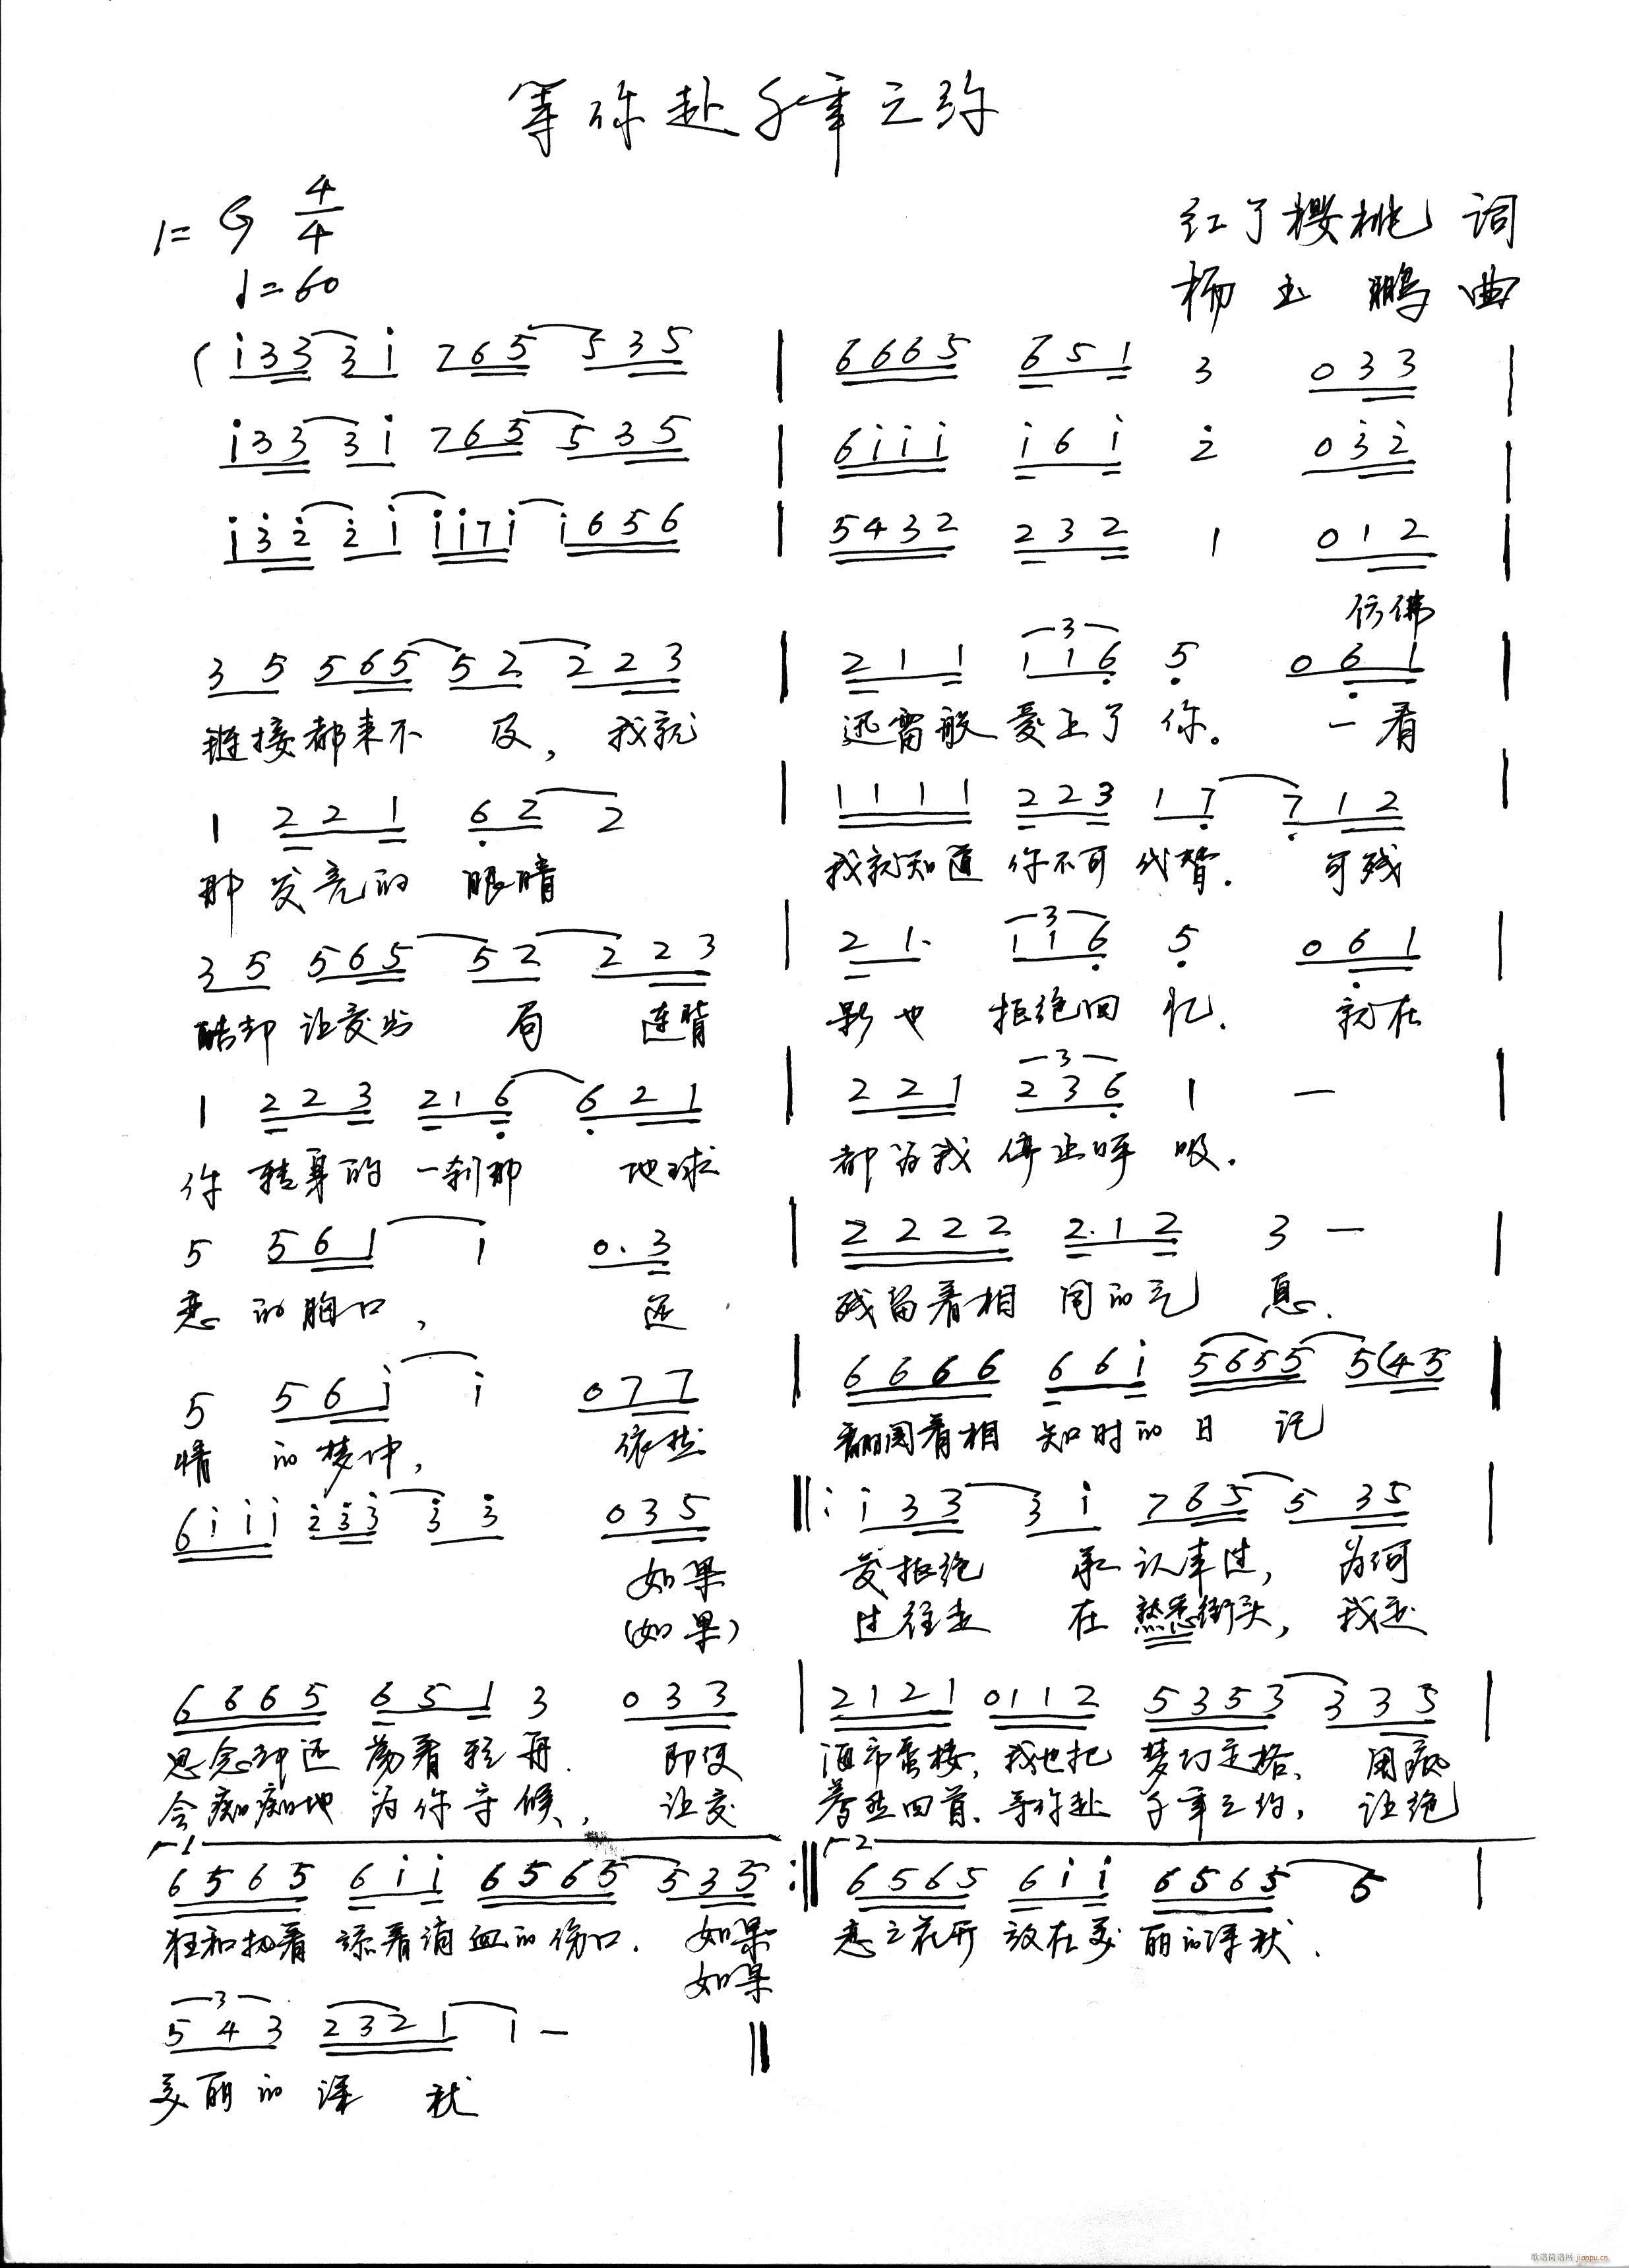 等你赴千年之约
1=G 4/4
♩=60
红了樱桃 词
杨玉鹏 曲
(i33 3i 765 535 | 6665 651 3 033 |
i33 3i 765 535 | 6iii i6i 2 032 |
i32 2i ii7i i656 | 5432 232 1 012 |
仿佛
35 565 52 223 | 211 116 5 061 |
链接都来不 及，我就 迅雷般 爱上了 你。 一看
1 221 62 2 | 1111 223 17 712
那 发亮的 眼睛 我就知道 你不可 代替. 可残
35 565 52 223 | 21. 116 5 061 |
酷却 让爱出 局 连背 影也 拒绝回 忆. 就在
1 223 216 621 | 221 236 1 — |
你 转身的 一刹那 地球 都为我 停止呼 吸.
5 561 1 0.3 | 2222 2.12 3 — |
恋 的胸口， 还 残留着相 同的气 息.
5 56i i 077 | 6666 66i 5655 5(45 |
情 的梦中， 依然 翻阅着相 知时的 日 记
6iii 233 33 035 ‖: i33 3i 765 535 |
如果 爱拒绝 承认年迈， 为何
(如果) 过往走 在 熟悉街头， 我还
6665 651 3 033 | 2121 0112 5353 335 |
思念却还 荡着轻舟. 即使 海市蜃楼，我也把 梦幻定格、 用疯
会痴痴地 为你守候， 让爱 蓦然回首、等你赴 千年之约， 让绝
1 2
6565 6ii 6565 535 :‖ 6565 6ii 6565 5 |
狂和执着 舔着滴 血的伤口. 如果 恋之花开 放在美 丽的深秋.
如果
543 2321 1 — ‖
美丽的 深 秋
歌谱简谱网 jianpu.cn